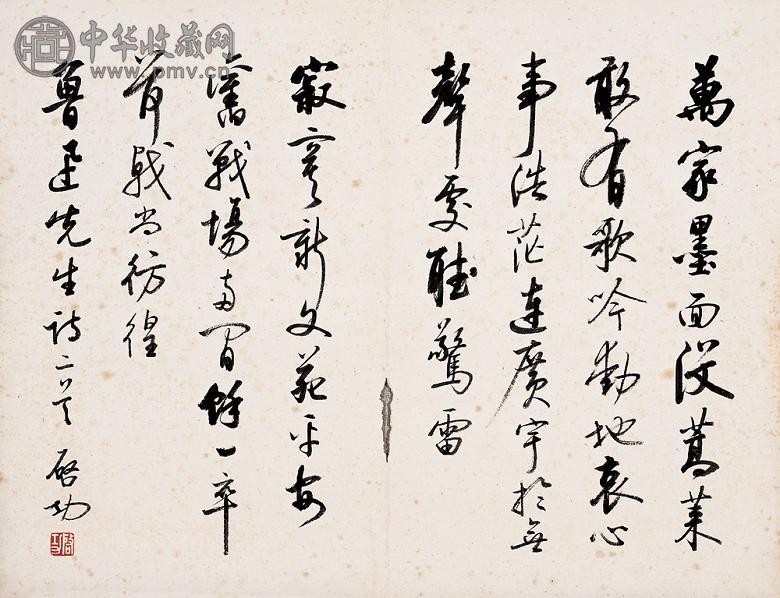 萬家墨面沒蒿萊
敢有歌吟動地哀心
事浩茫連廣宇於無
聲處聽驚雷
寂寞新文苑平安
舊戰場兩間餘一卒
荷戟尚彷徨
魯迅先生詩二首 啓功
中华收藏网
www.pmv.cn